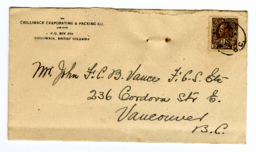 THE
CHILLIWACK EVAPORATING & PACKING CO.
LIMITED
P.O. BOX
CHILLIWACK, BRITISH COLUMBIA
Mr. John F.C.B. Vance F.C.S. Etc
236 Cordova Str E.
Vancouver
B.C.